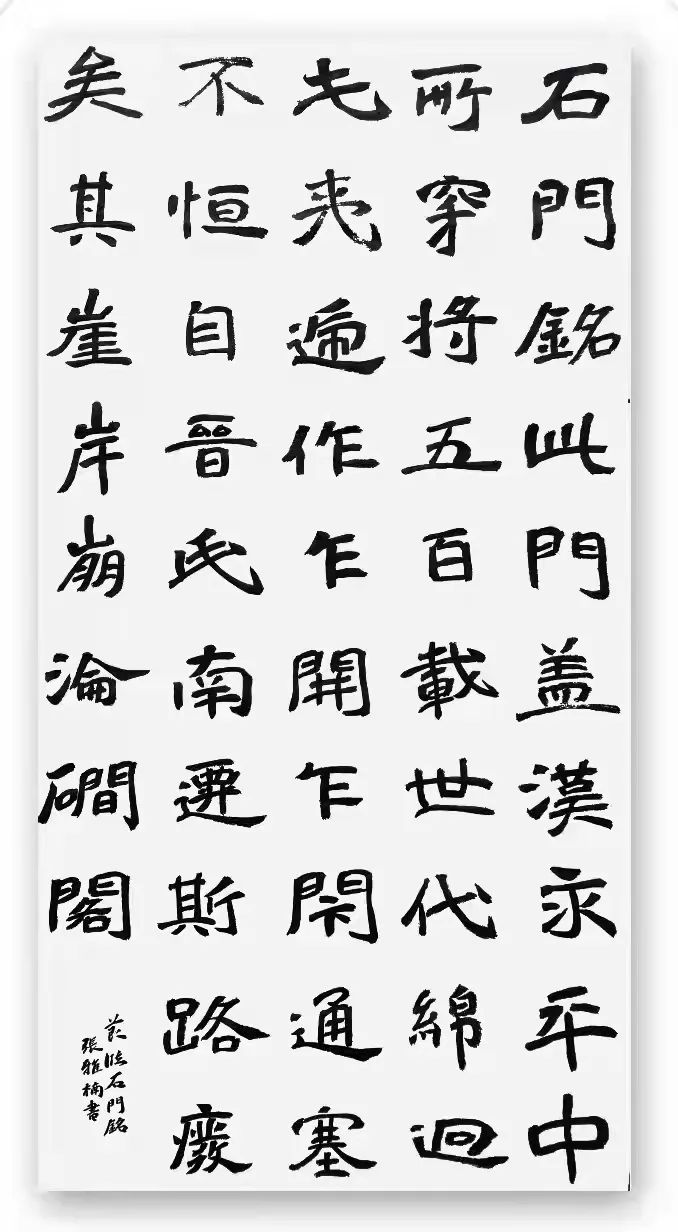 石門銘此門盖漢永平中
所穿将五百載世代綿迥
屯夷遞作乍開乍閇通塞
不恒自晉氏南遷斯路廢
矣其崖岸崩淪磵閣
节临石門銘
張雅楠書